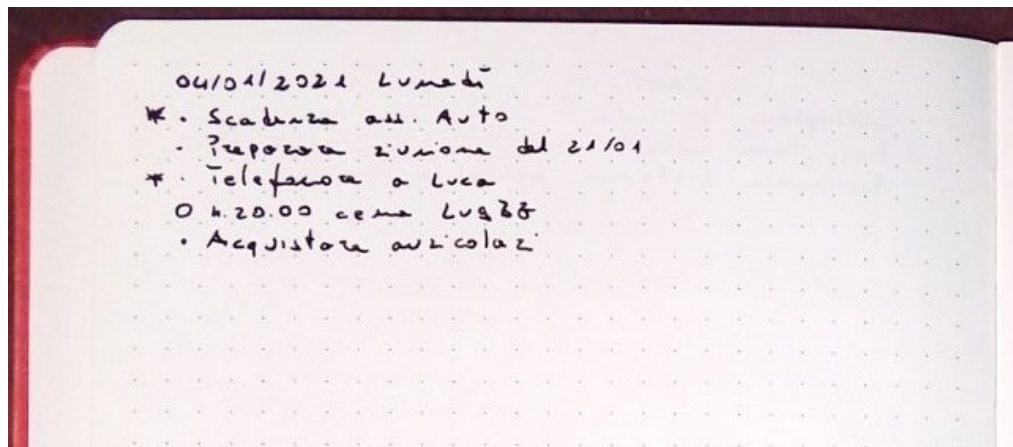 04/01/2021 Lunedì
* · Scadenza ass. Auto
· Preparare riunione del 21/01
* · Telefonare a Luca
O h.20.00 cena
· Acquistare auricolari